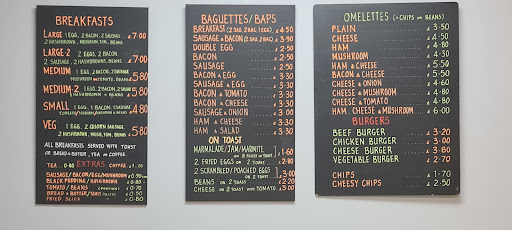 BREAKFASTS
LARGE 1 EGG, 2 BACON, 2 SAUSAGE
2 HASHBROWN, MUSHROOM, TOM, BEANS £7·00
LARGE-2 2 EGGS, 2 BACON
2 SAUSAGE, 2 HASHBROWNS, BEANS £7·00
MEDIUM 1 EGG, 2 BACON, 2 SAUSAGE
MUSHROOM OR TOMATO, BEANS £5·80
MEDIUM-2 1 EGG, 2 BACON, 2 SAUSAGE
2 HASHBROWNS & BEANS £5·80
SMALL 1 EGG, 1 BACON, 1 SAUSAGE
TOMATO/MUSHROOM, BEANS £4·80
VEG 1 EGG, 2 QUORN SAUSAGE
2 HASHBROWN, MUSH, TOM, BEANS £5·80
ALL BREAKFASTS SERVED WITH TOAST
OR BREAD + BUTTER, TEA OR COFFEE
EXTRAS
TEA 0·80 COFFEE £1·20
SAUSAGE/BACON/EGG/MUSHROOM
BLACK PUDDING/HASHBROWN £0·80
TOMATO/BEANS
BREAD + BUTTER/TOAST
FRIED SLICE
BAGUETTES/BAPS
BREAKFAST (2 SAU, 2 BAC, 1 EGG) £4·50
SAUSAGE & BACON (2 SAU, 2 BAC) £3·90
DOUBLE EGG £2·50
BACON £2·50
SAUSAGE £2·50
BACON & EGG £3·30
SAUSAGE & EGG £3·30
BACON & TOMATO £3·30
BACON & CHEESE £3·30
SAUSAGE & ONION £3·00
HAM & CHEESE £3·30
HAM & SALAD £3·30
ON TOAST
MARMALADE/JAM/MARMITE
ON 2 SLICES OF TOAST £1·60
2 FRIED EGGS ON 2 TOAST £2·80
2 SCRAMBLED/POACHED EGGS
ON 2 TOAST £3·00
BEANS ON 2 TOAST £2·20
CHEESE ON 2 TOAST WITH TOMATO £3·00
OMELETTES (+ CHIPS OR BEANS)
PLAIN £3·50
CHEESE £4·50
HAM £4·80
MUSHROOM £4·30
HAM & CHEESE £5·50
BACON & CHEESE £5·50
CHEESE & ONION £4·60
CHEESE & MUSHROOM £4·80
CHEESE & TOMATO £4·80
HAM, CHEESE & MUSHROOM £6·00
BURGERS
BEEF BURGER £3·20
CHICKEN BURGER £3·00
CHEESE BURGER £3·80
VEGETABLE BURGER £2·70
CHIPS £1·70
CHEESY CHIPS £2·50